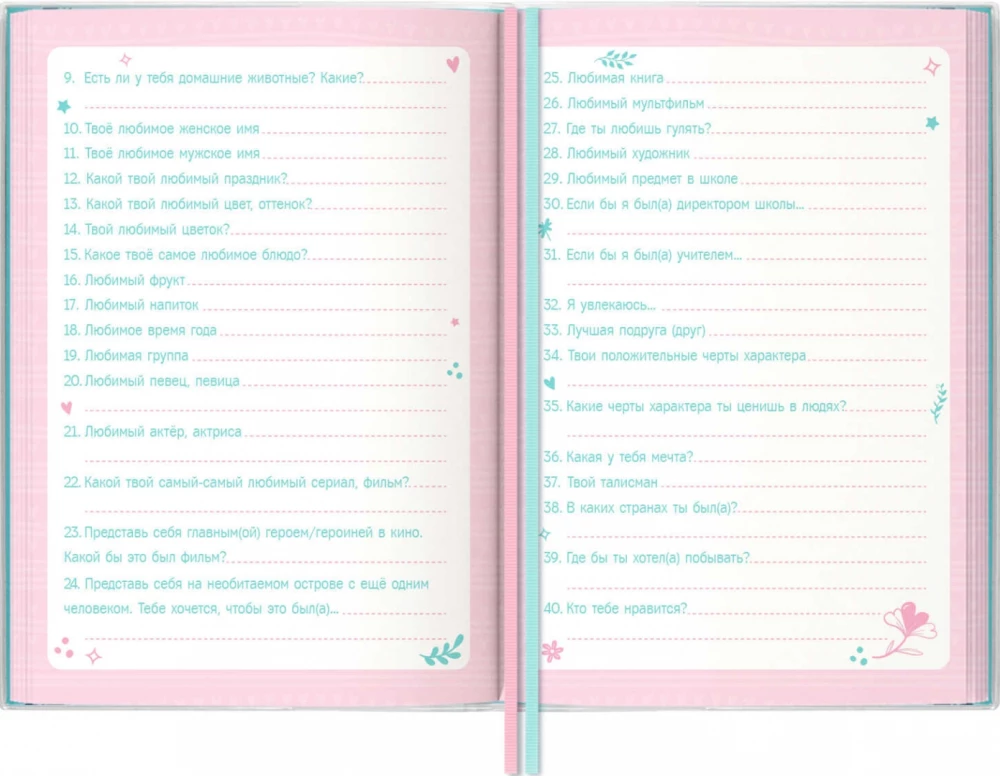 9. Есть ли у тебя домашние животные? Какие?
10. Твоё любимое женское имя
11. Твоё любимое мужское имя
12. Какой твой любимый праздник?
13. Какой твой любимый цвет, оттенок?
14. Твой любимый цветок?
15. Какое твоё самое любимое блюдо?
16. Любимый фрукт
17. Любимый напиток
18. Любимое время года
19. Любимая группа
20. Любимый певец, певица
21. Любимый актёр, актриса
22. Какой твой самый-самый любимый сериал, фильм?
23. Представь себя главным(ой) героем/героиней в кино.
Какой бы это был фильм?
24. Представь себя на необитаемом острове с ещё одним
человеком. Тебе хочется, чтобы это был(а)...
25. Любимая книга
26. Любимый мультфильм
27. Где ты любишь гулять?
28. Любимый художник
29. Любимый предмет в школе
30. Если бы я был(а) директором школы...
31. Если бы я был(а) учителем...
32. Я увлекаюсь...
33. Лучшая подруга (друг)
34. Твои положительные черты характера
35. Какие черты характера ты ценишь в людях?
36. Какая у тебя мечта?
37. Твой талисман
38. В каких странах ты был(а)?
39. Где бы ты хотел(а) побывать?
40. Кто тебе нравится?